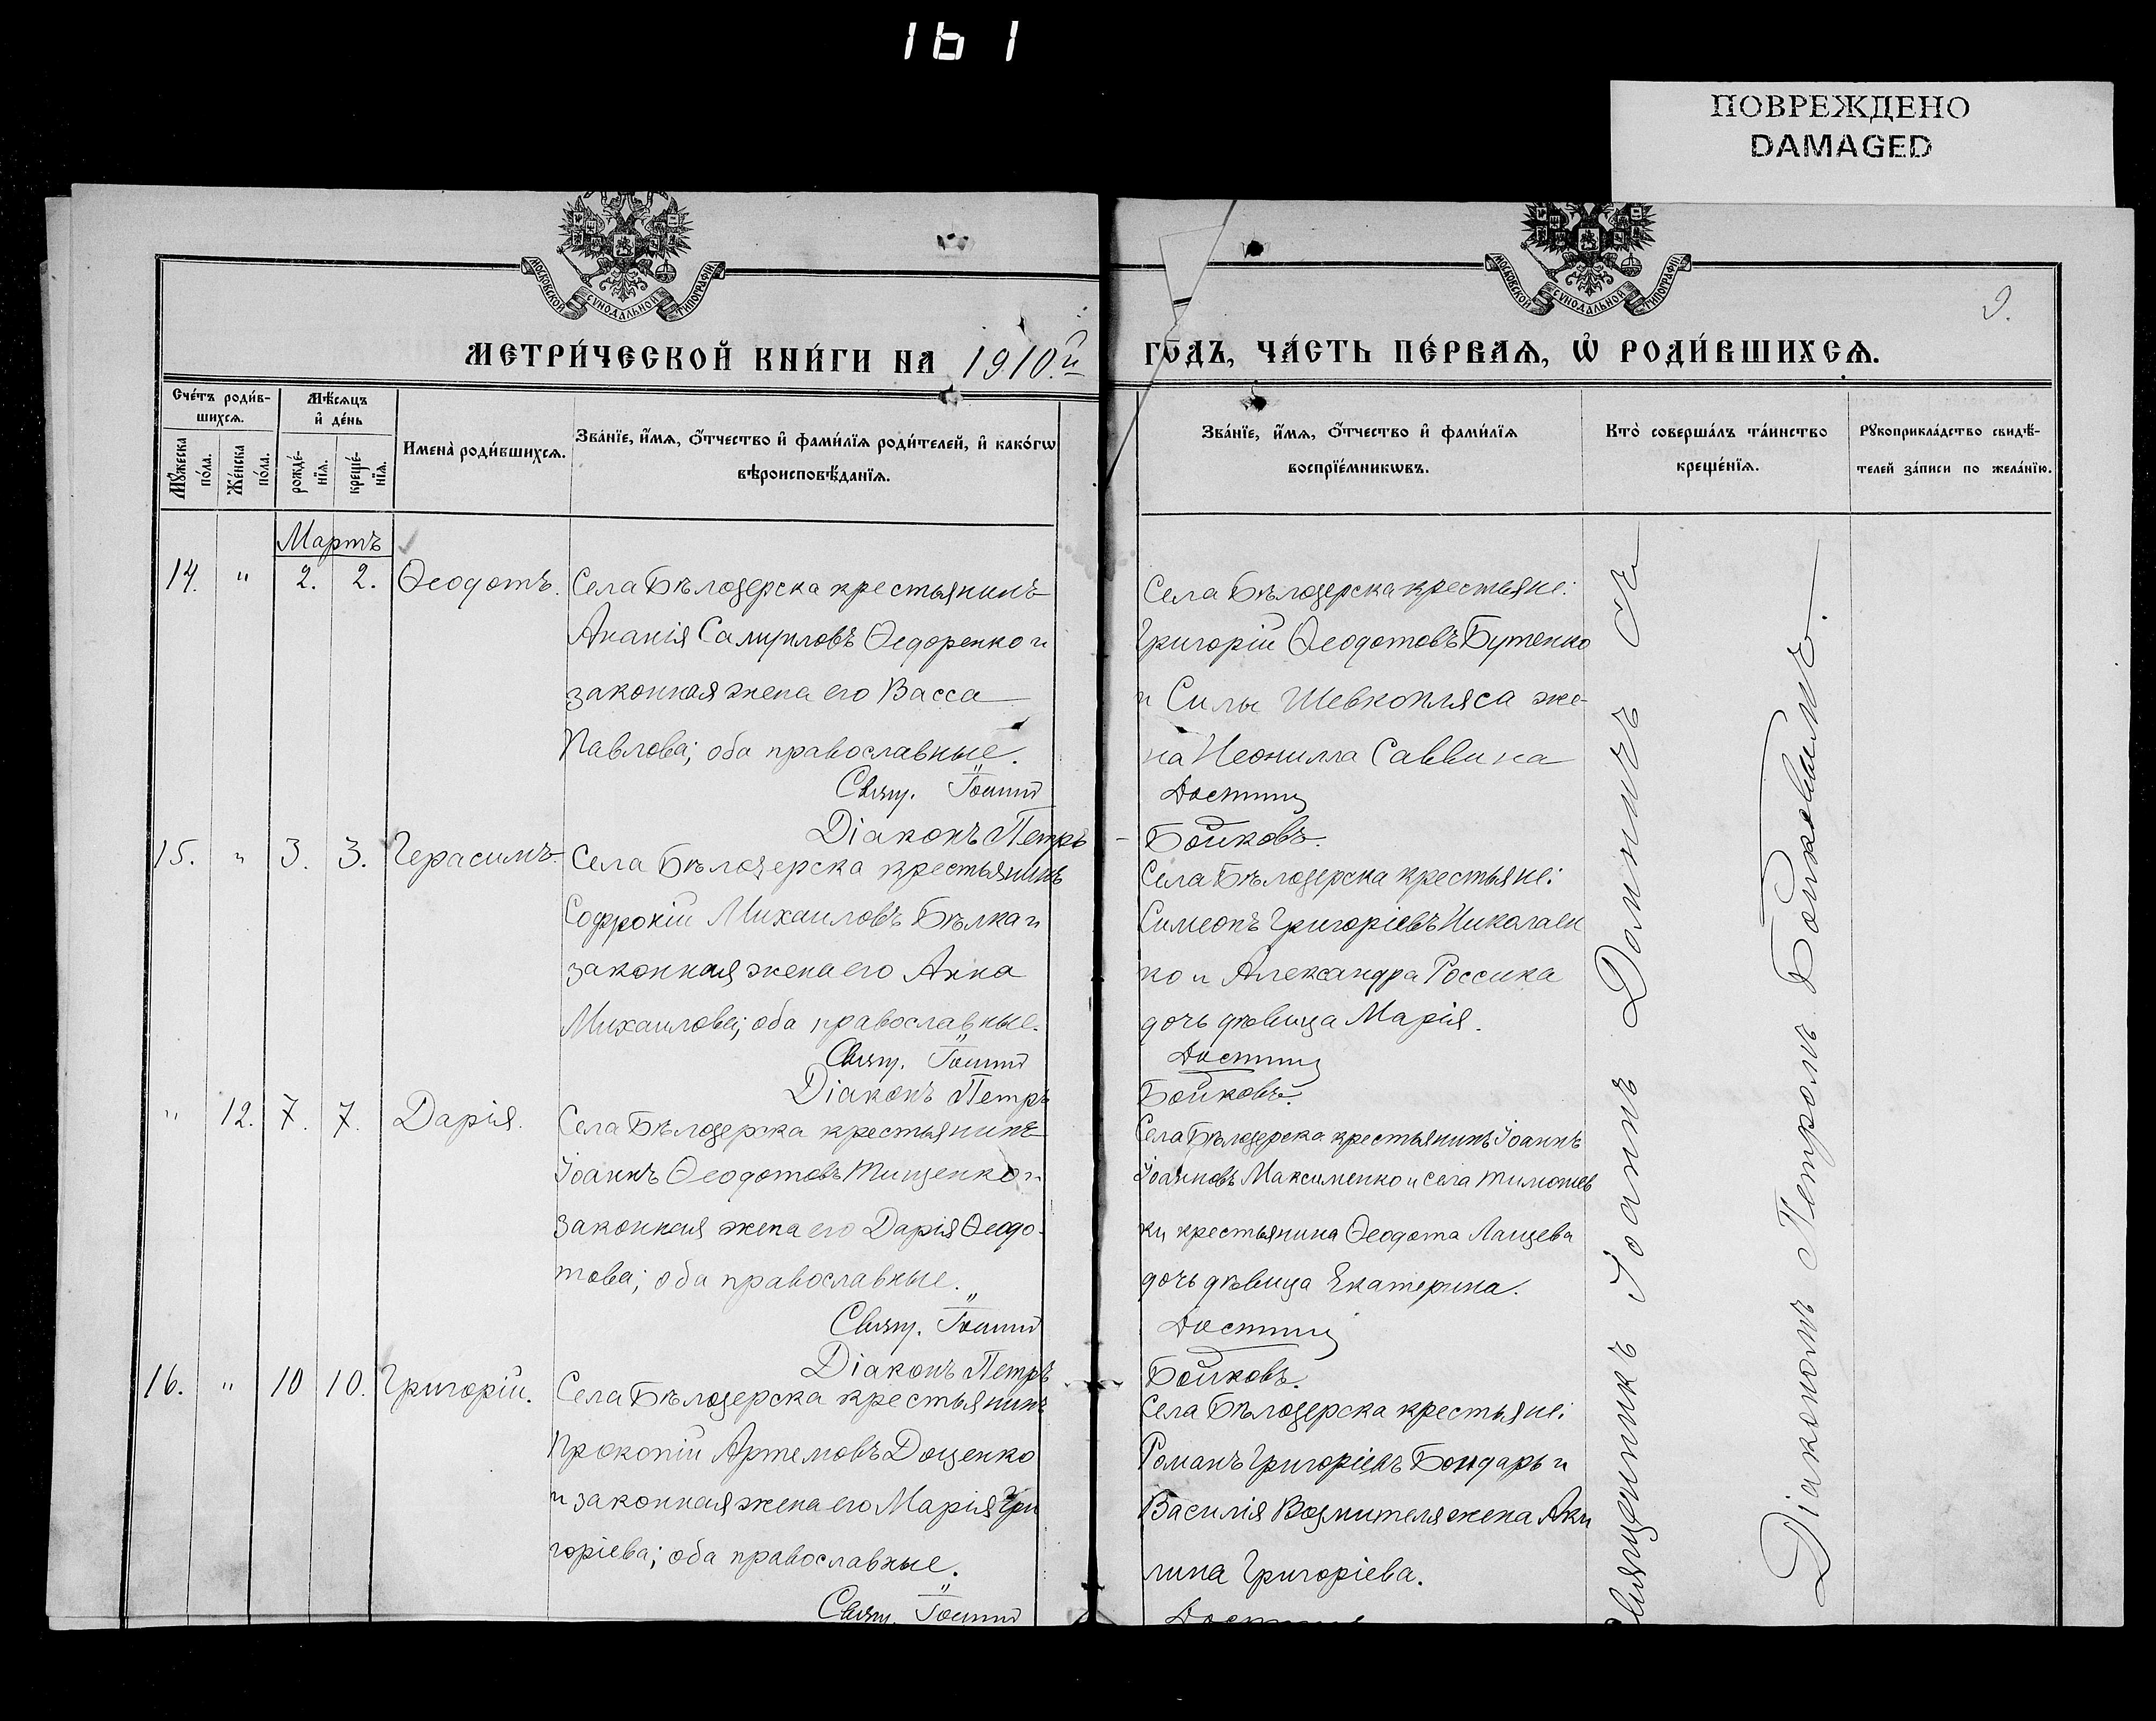 161
ПОВРЕЖДЕНО
DAMAGED
МОСКОВСКОЙ СѴНОДАЛЬНОЙ ТИПОГРАФІИ
МОСКОВСКОЙ СѴНОДАЛЬНОЙ ТИПОГРАФІИ
9.
МЕТРИ́ЧЕСКОЙ КНИ́ГИ НА 1910.й
ГО́ДЪ, ЧА́СТЬ ПЕ́РВАѦ, Ѡ҆ РОДИ́ВШИХСѦ.
Сче́тъ роди́в-
шихсѧ.
Мꙋ́жеска по́ла.
Же́нска по́ла.
Мѣ́сѧцъ
и҆ де́нь
рожде́-нїѧ.
креще́-нїѧ.
Имена̀ роди́вшихсѧ.
Зва́нїе, и҆́мѧ, ѻ҆́тчество и҆ фами́лїѧ роди́телей, и҆ како́гѡ
вѣроисповѣ́данїѧ.
Зва́нїе, и҆́мѧ, ѻ҆́тчество и҆ фами́лїѧ
воспрїе́мникѡвъ.
Кто̀ соверша́лъ та́инство
креще́нїѧ.
Рꙋкоприкла́дство свидѣ́-
телей за́писи по жела́нїю.
Мартъ
14. " 2. 2. Ѳеодотъ.
Села Бѣлозерска крестьянинъ
Ананія Самуиловъ Ѳедоренко и
законная жена его Васса
Павлова; оба православные.
Свящ. Іоаннъ
Діаконъ Петръ
Села Бѣлозерска крестьяне:
Григорій Ѳеодотовъ Бутенко
и Силы Шевкопляса же-
на Неонилла Саввина
Бойковъ.
15. " 3. 3. Герасимъ.
Села Бѣлозерска крестьянинъ
Софроній Михаиловъ Бѣлка и
законная жена его Анна
Михаилова; оба православные.
Свящ. Іоаннъ
Діаконъ Петръ
Села Бѣлозерска крестьяне:
Симеонъ Григоріевъ Николаен
ко и Александра Россика
дочь дѣвица Марія.
Бойковъ.
" 12. 7. 7. Дарія.
Села Бѣлозерска крестьянинъ
Іоаннъ Ѳеодотовъ Тищенко и
законная жена его Дарія Ѳеодо-
това; оба православные.
Свящ. Іоаннъ
Діаконъ Петръ
Села Бѣлозерска крестьянинъ Іоаннъ
Іоанновъ Максименко и села Тимошев
ки крестьянина Ѳеодота Лащева
дочь дѣвица Екатерина.
Бойковъ.
16. " 10 10. Григорій.
Села Бѣлозерска крестьянинъ
Прокопій Артемовъ Доценко
и законная жена его Марія Гри
горіева; оба православные.
Свящ. Іоаннъ
Села Бѣлозерска крестьяне:
Романъ Григоріевъ Бондарь и
Василія Возмителя жена Аки
лина Григоріева.
Священникъ Іоаннъ
Діакономъ Петромъ Бойковымъ.